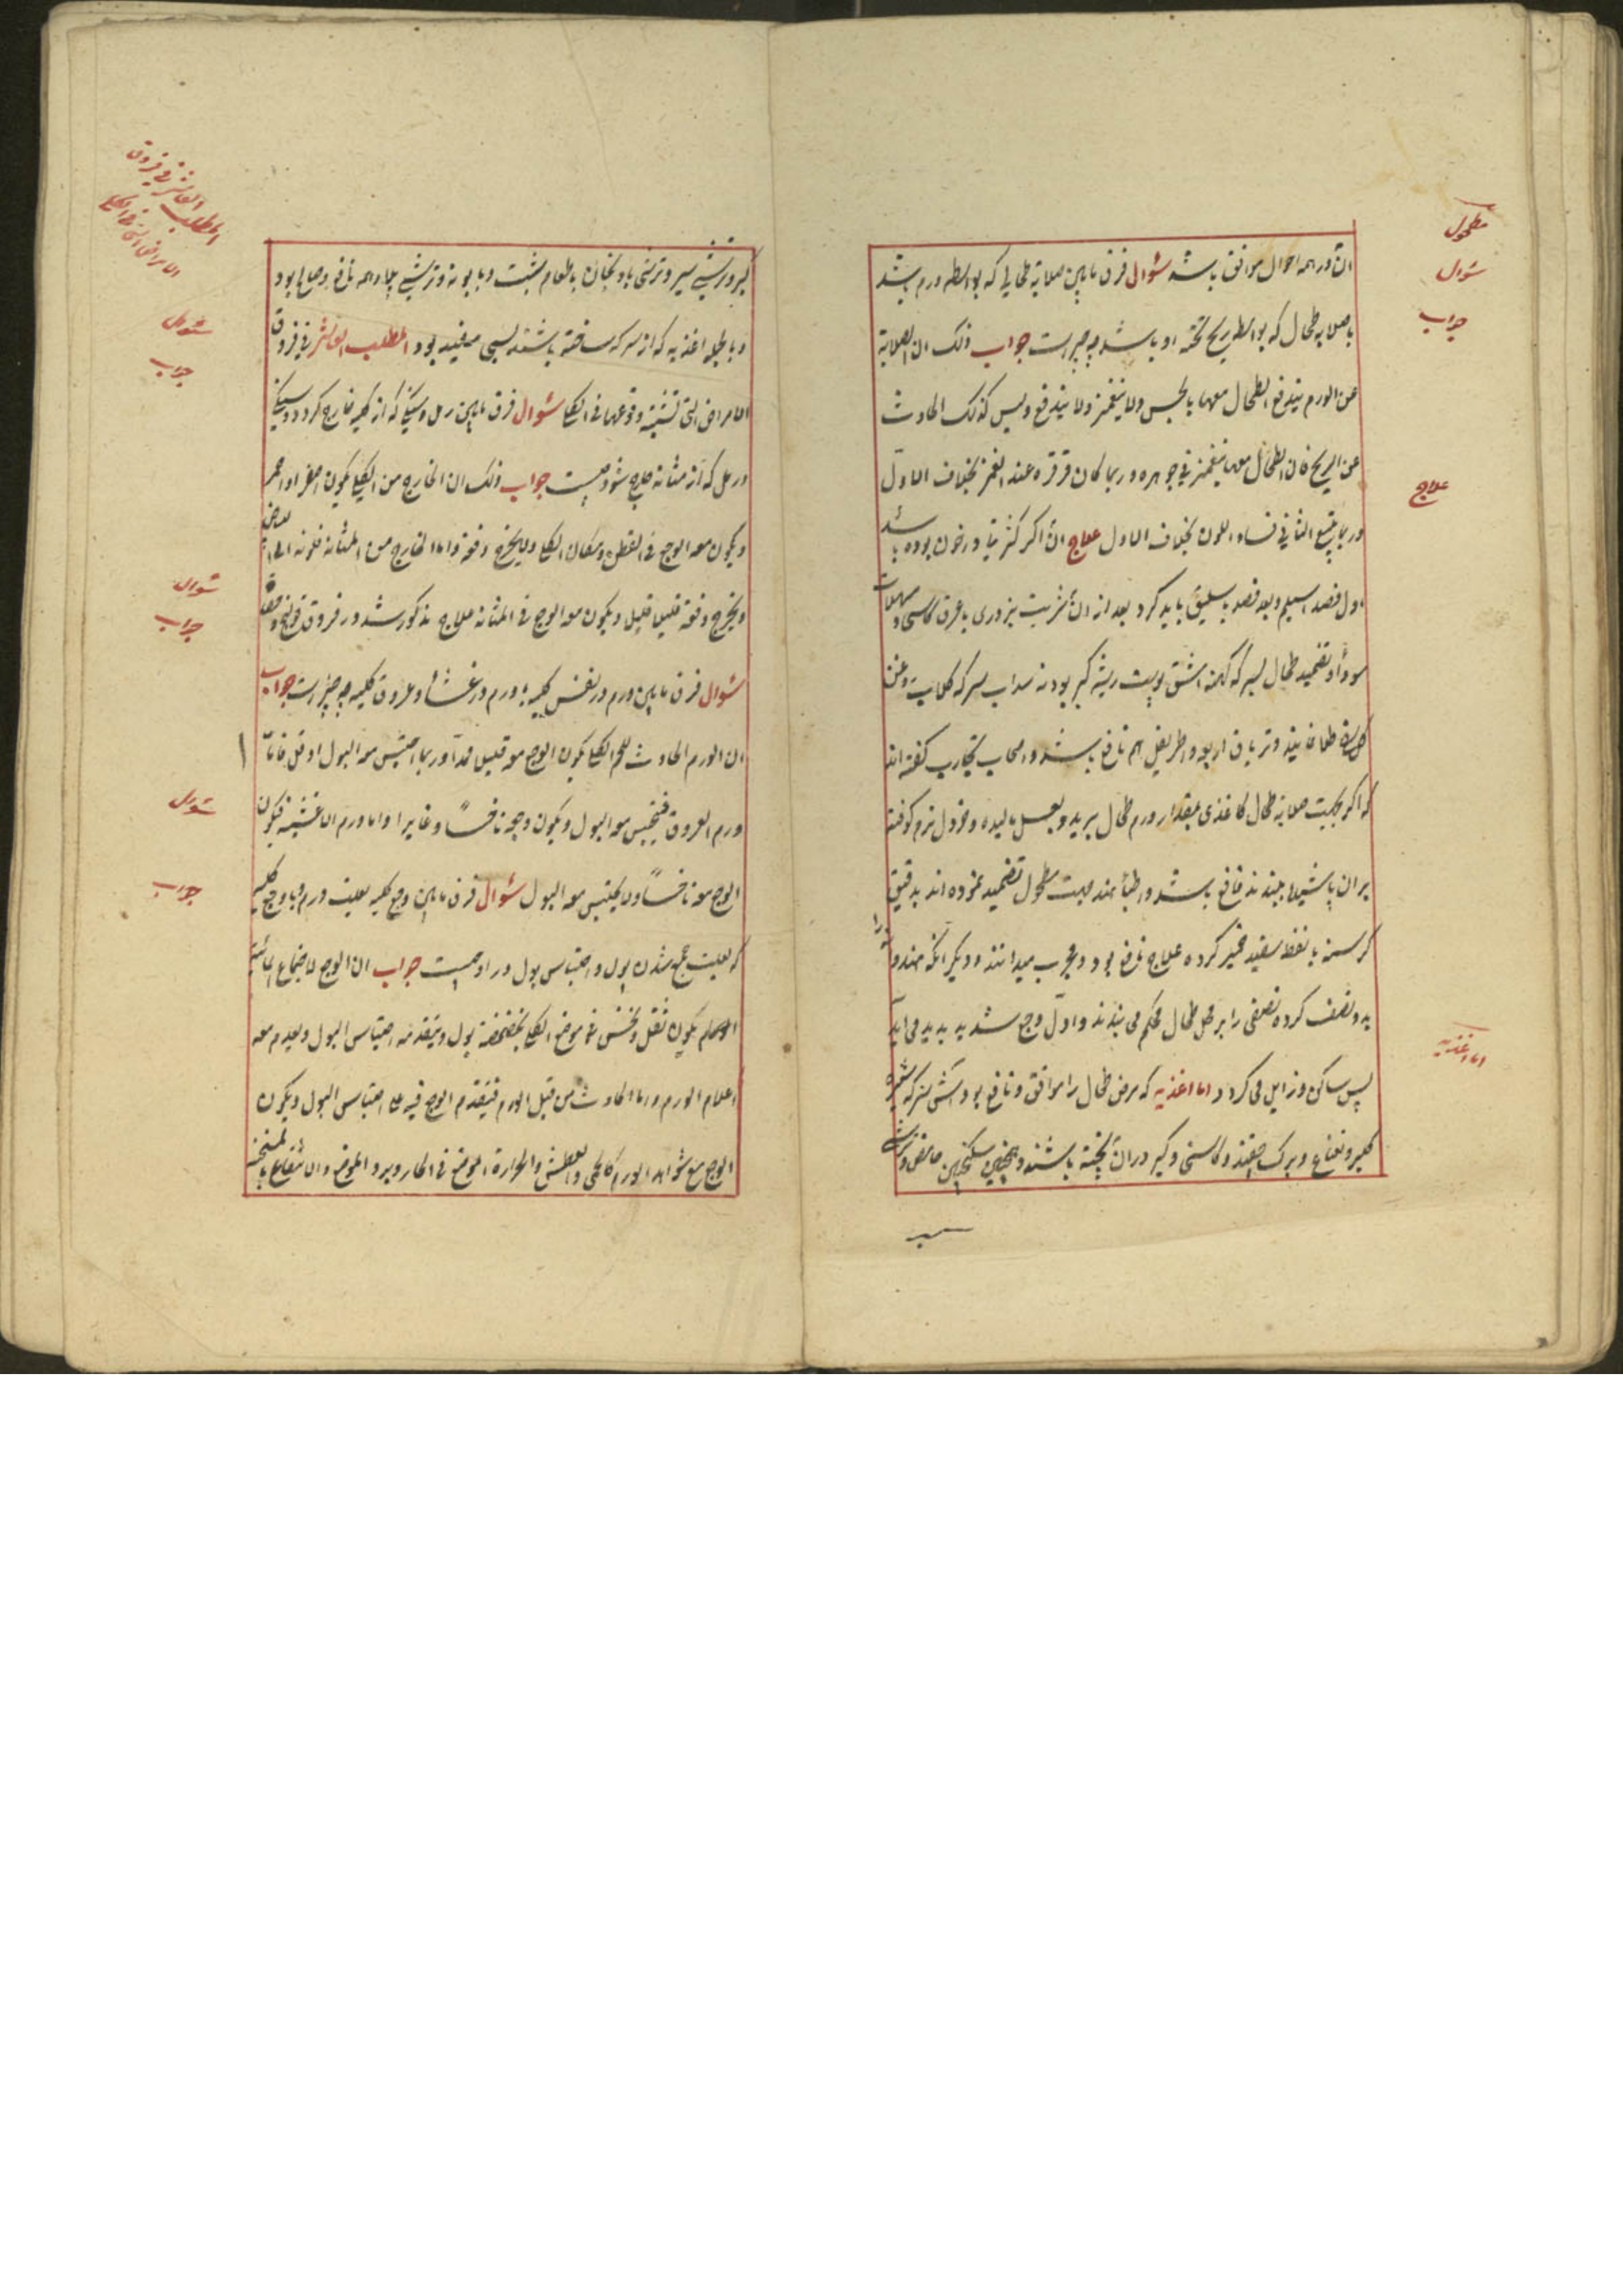 ان در همه احوال موافق باشد سؤال فرق مابین صلابة طحالی که بواسطه ورم باشد
با صلابه طحال که بواسطه ریح تحته او باشد چه چیز است جواب ذلک ان الصلابة
عن الورم یندفع الطحال معها بالجس ولا ینغمز ولا یندفع ولیس کذلک الحادث
عن الریح فان الطحال معها ینغمز فی جوهره وربما کان قرقره عند الغمز بخلاف الاول
وربما یتبع الثانی فساد اللون بخلاف الاول علاج ان اکر کثرتی در خون بوده باشد
اول فصد اسیلم وبعد فصد باسلیق باید کرد بعد از ان شربت بزوری با عرق کاسنی و مسهلات
سودا و تضمید طحال بسرکه کهنه اشق پوست ریشه کبر پودنه سداب سرکه
وتریاق اربعه واطریفل هم نافع باشد واصحاب تجارب کفته اند
که اکر بجهت صلابة طحال کاغذی بمقدار ورم طحال ببرید وبعسل مالیده وخردل نرم کوفته
بران پاشیده ببندند نافع باشد واطبا هند جهت مطحول تضمید نموده اند بدقیق
کرسنه با نفط سفید خمیر کرده علاج نافع بود ومجرب میدانند ودیکر انکه هندوانه را
به دو نصف کرده نصفی را بر محل طحال محکم می بندند واول وجع شدید پدید می اید
پس ساکن وزایل می کردد اما اغذیه که مرض طحال را موافق ونافع بود آش سرکه شیره
کلیر ونعناع وبرک چغندر وکاسنی وکبر دران پخته باشند وهمچنین سکنجبین حامض وترشی
مطحول
سؤال
جواب
علاج
اما اغذیه
کبر وترشی سیر وترشی بادنجان با طعام شبت وبابونه وترشی همه نافع وصالح بود
وبالجمله اغذیه که از سرکه ساخته باشند بسی مفید بود المطلب العاشر فی فروق
الامراض التی تشتبه وقوعها فی الکلی سؤال فرق مابین رمل وسنکی که از کلیه خارج کردد وسنکی
ورمل که از مثانه خارج شود چیست جواب ذلک ان الخارج من الکلی یکون اصفر او احمر
ویکون معه الوجع فی القطن ومکان الکلی ولا یخرج دفعة واما الخارج من المثانة فلونه الی البیاض
ویخرج دفعة قلیلا قلیل ویکون معه الوجع فی المثانه علاج مذکور شد در فروق قولنج وحصاة
سؤال فرق مابین ورم در نفس کلیه با ورم در غشا وعروق کلیه چه چیز است جواب
ان الورم الحادث للحم الکلی یکون الوجع معه قلیل جدا وربما احتبس معه البول او قل فاما
ورم العروق فیحتبس معه البول ویکون وجعه ناخسا وغایرا واما ورم الاغشیه فیکون
الوجع معه ناخسا ولا یحتبس معه البول سؤال فرق مابین وجع کلیه بعلت ورم با وجع کلیه
که بعلت جمع شدن بول واحتباس بول در او چیست جواب ان الوجع لاجتماع المائیة
یکون ثقل ونخس فی موضع الکلی بول ویتقدمه احتباس البول ویعدم معه
اعلام الورم واما الحادث من قبل الورم فیتقدم الوجع فیه علی احتباس البول ویکون
الوجع مع شواهد الورم کالحمی والعطش والحرارة الموضع فی الحار وبرد الموضع والانتفاع بالمسخنه
المطلب العاشر فی فروق
الامراض التی فی الکلی
سؤال
جواب
سؤال
جواب
سؤال
جواب